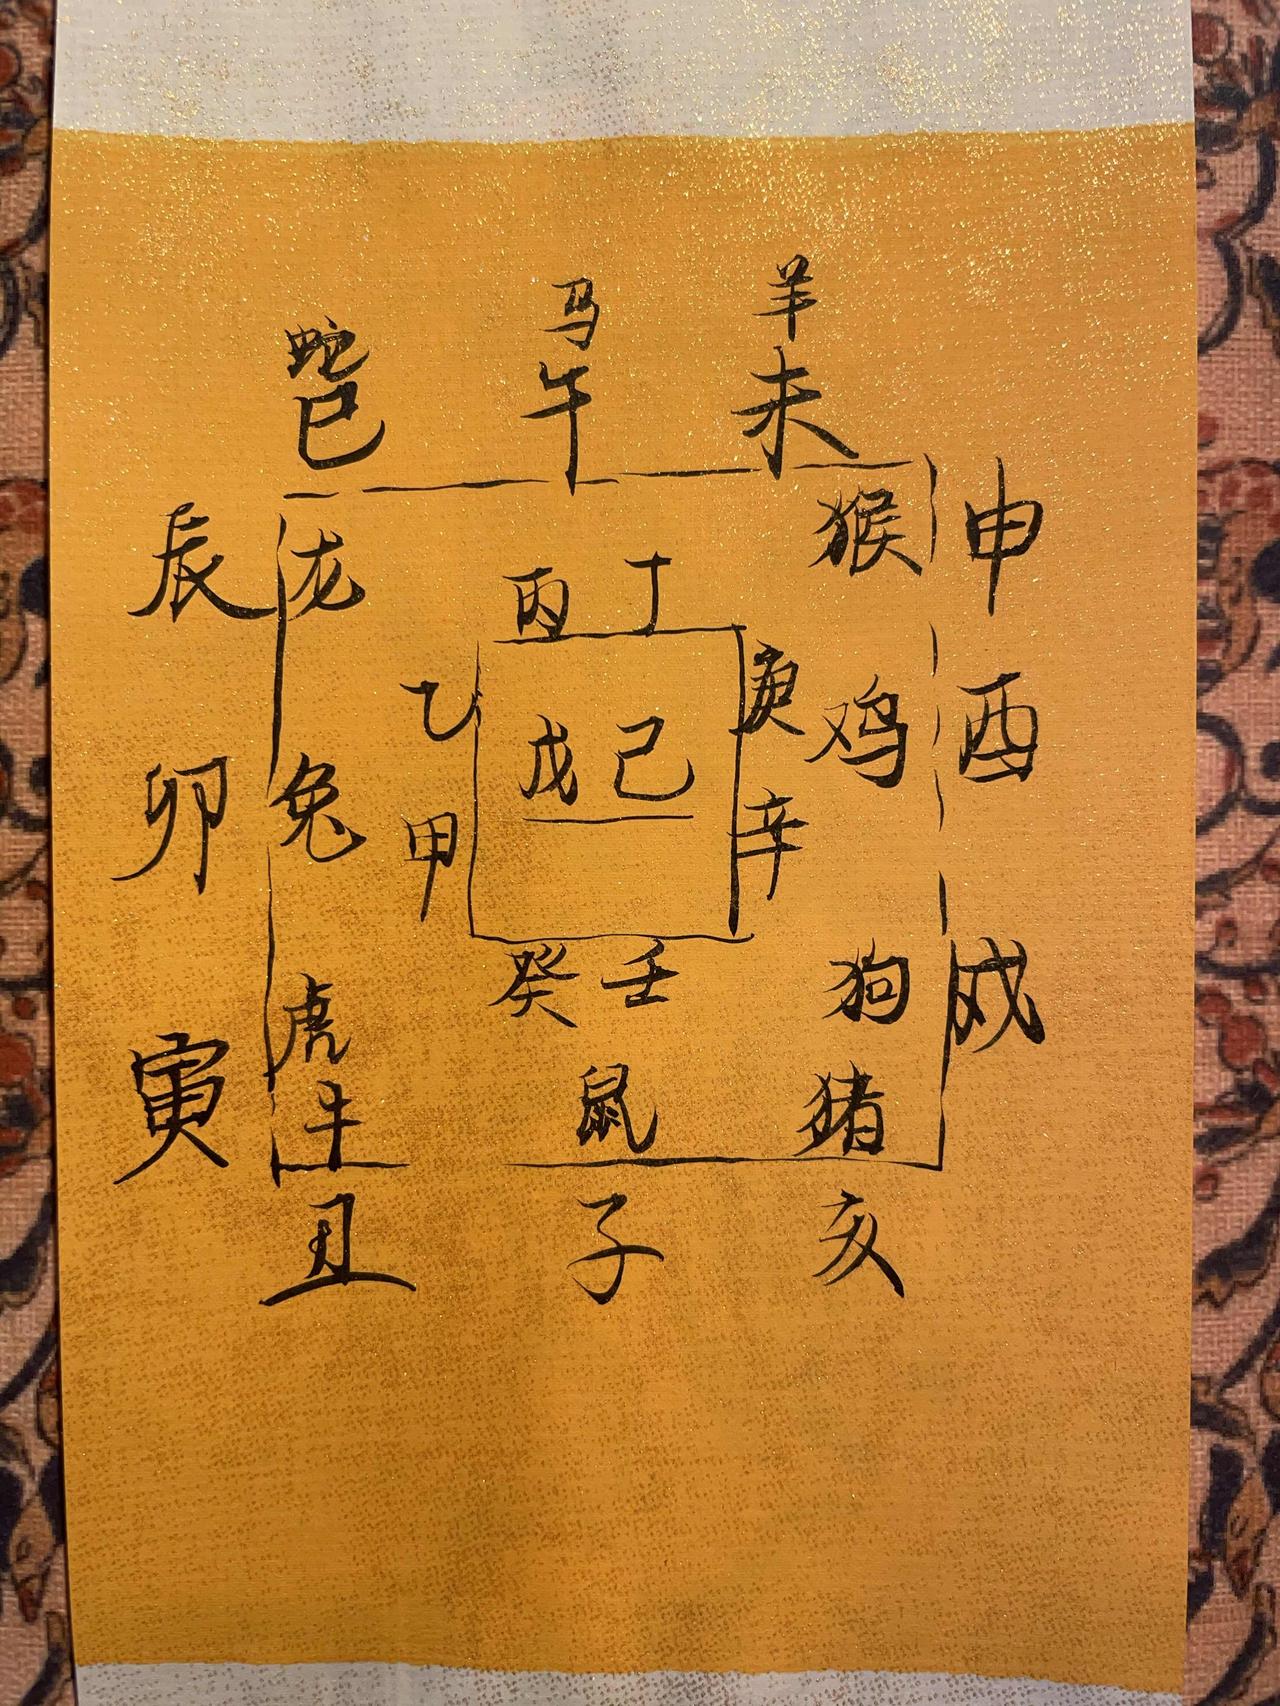 马 羊
蛇
巳 午 未
辰 龙 猴 申
丙 丁
乙 庚 鸡 酉
戊 己
卯 兔 甲 辛
癸 壬 狗 戌
寅 虎
牛 鼠 猪
丑 子 亥